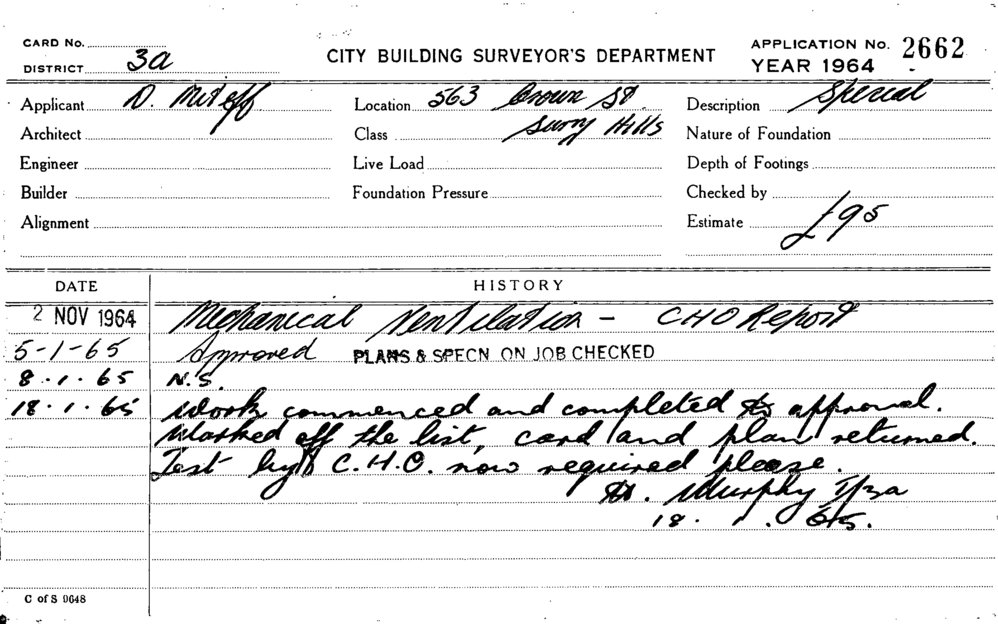 CARD No.
DISTRICT 3a
CITY BUILDING SURVEYOR'S DEPARTMENT
APPLICATION No. 2662
YEAR 1964
Applicant D. Miteff
Location 563 Crown St.
Description Special
Architect
Class Surry Hills
Nature of Foundation
Engineer
Live Load
Depth of Footings
Builder
Foundation Pressure
Checked by
Alignment
Estimate £95
DATE HISTORY
2 NOV 1964 Mechanical Ventilation - CHO Report
5-1-65 Approved PLANS & SPECN ON JOB CHECKED
8.1.65 N.S.
18.1.65 Work commenced and completed to approval.
Marked off the list, card and plan returned.
Test by C.H.O. now required please.
Murphy
18.1.65.
C of S 0648